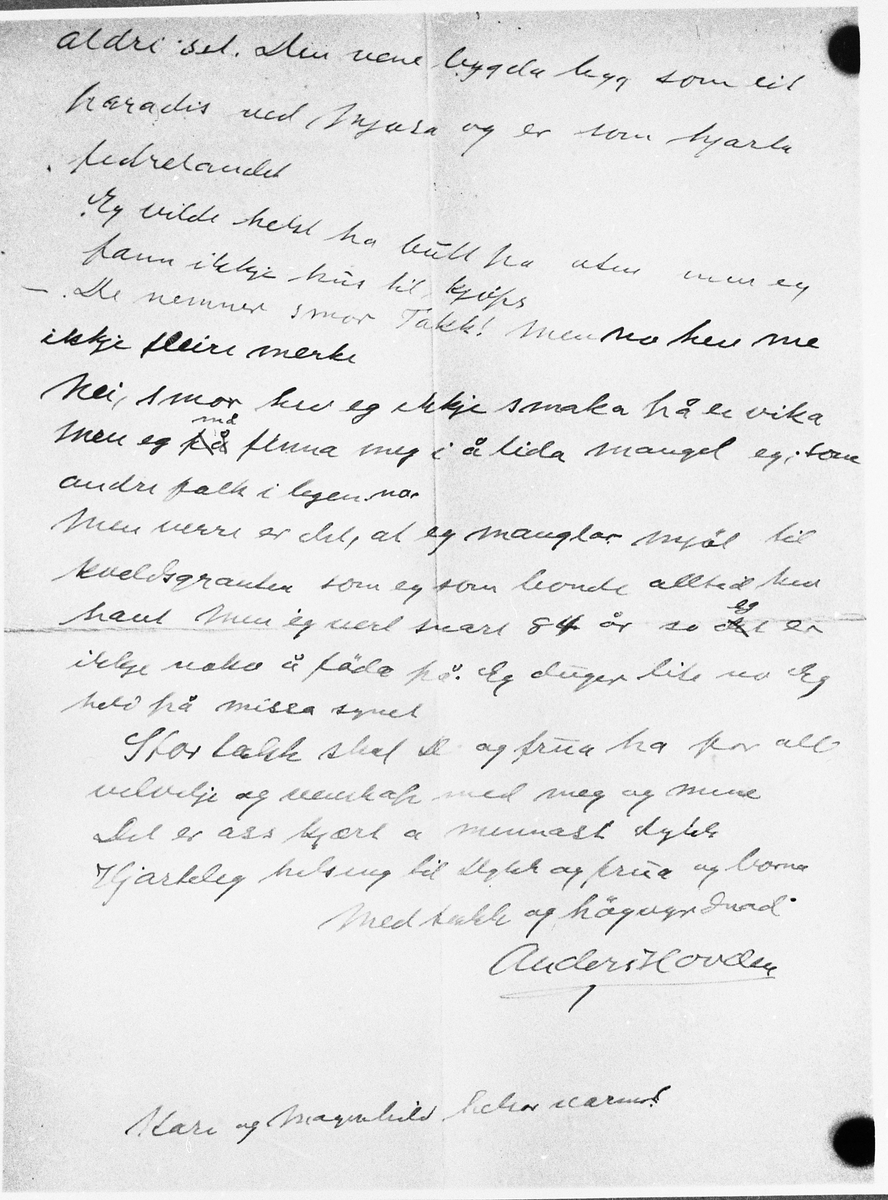 aldri set. Den vene bygda ligg som eit
paradis ved Mjøsa og er som hjarta
fedrelandet
Eg vilde helst ha butt på men eg
fann ikkje hus til kjøps
- De nemner smør Takk! Men no hev me
ikkje fleire merke
Nei, smør hev eg ikkje smaka på ei vika
men eg må finna meg i å lida mangel eg, som
andre folk i no
Men verre er det, at eg manglar mjøl til
kveldsgrauten som eg som bonde alltid hev
havt Men eg vert snart 84 år so eg er
ikkje noko å föda på. Eg duger lite no Eg
held på missa synet
Stor takk skal De og frua ha for all
velvilje og venskap med meg og mine
Det er oss kjært å minnast dykk
Hjarteleg helsing til Dykk og frua og borna
Med takk og högvyrdnad
Anders Hovden
Kari og Magnhild helsar varmt!